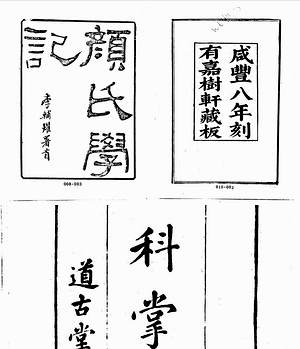 顏氏學
記
李輔燿署首
咸豐八年刻
有嘉樹軒藏板
科掌
道古堂